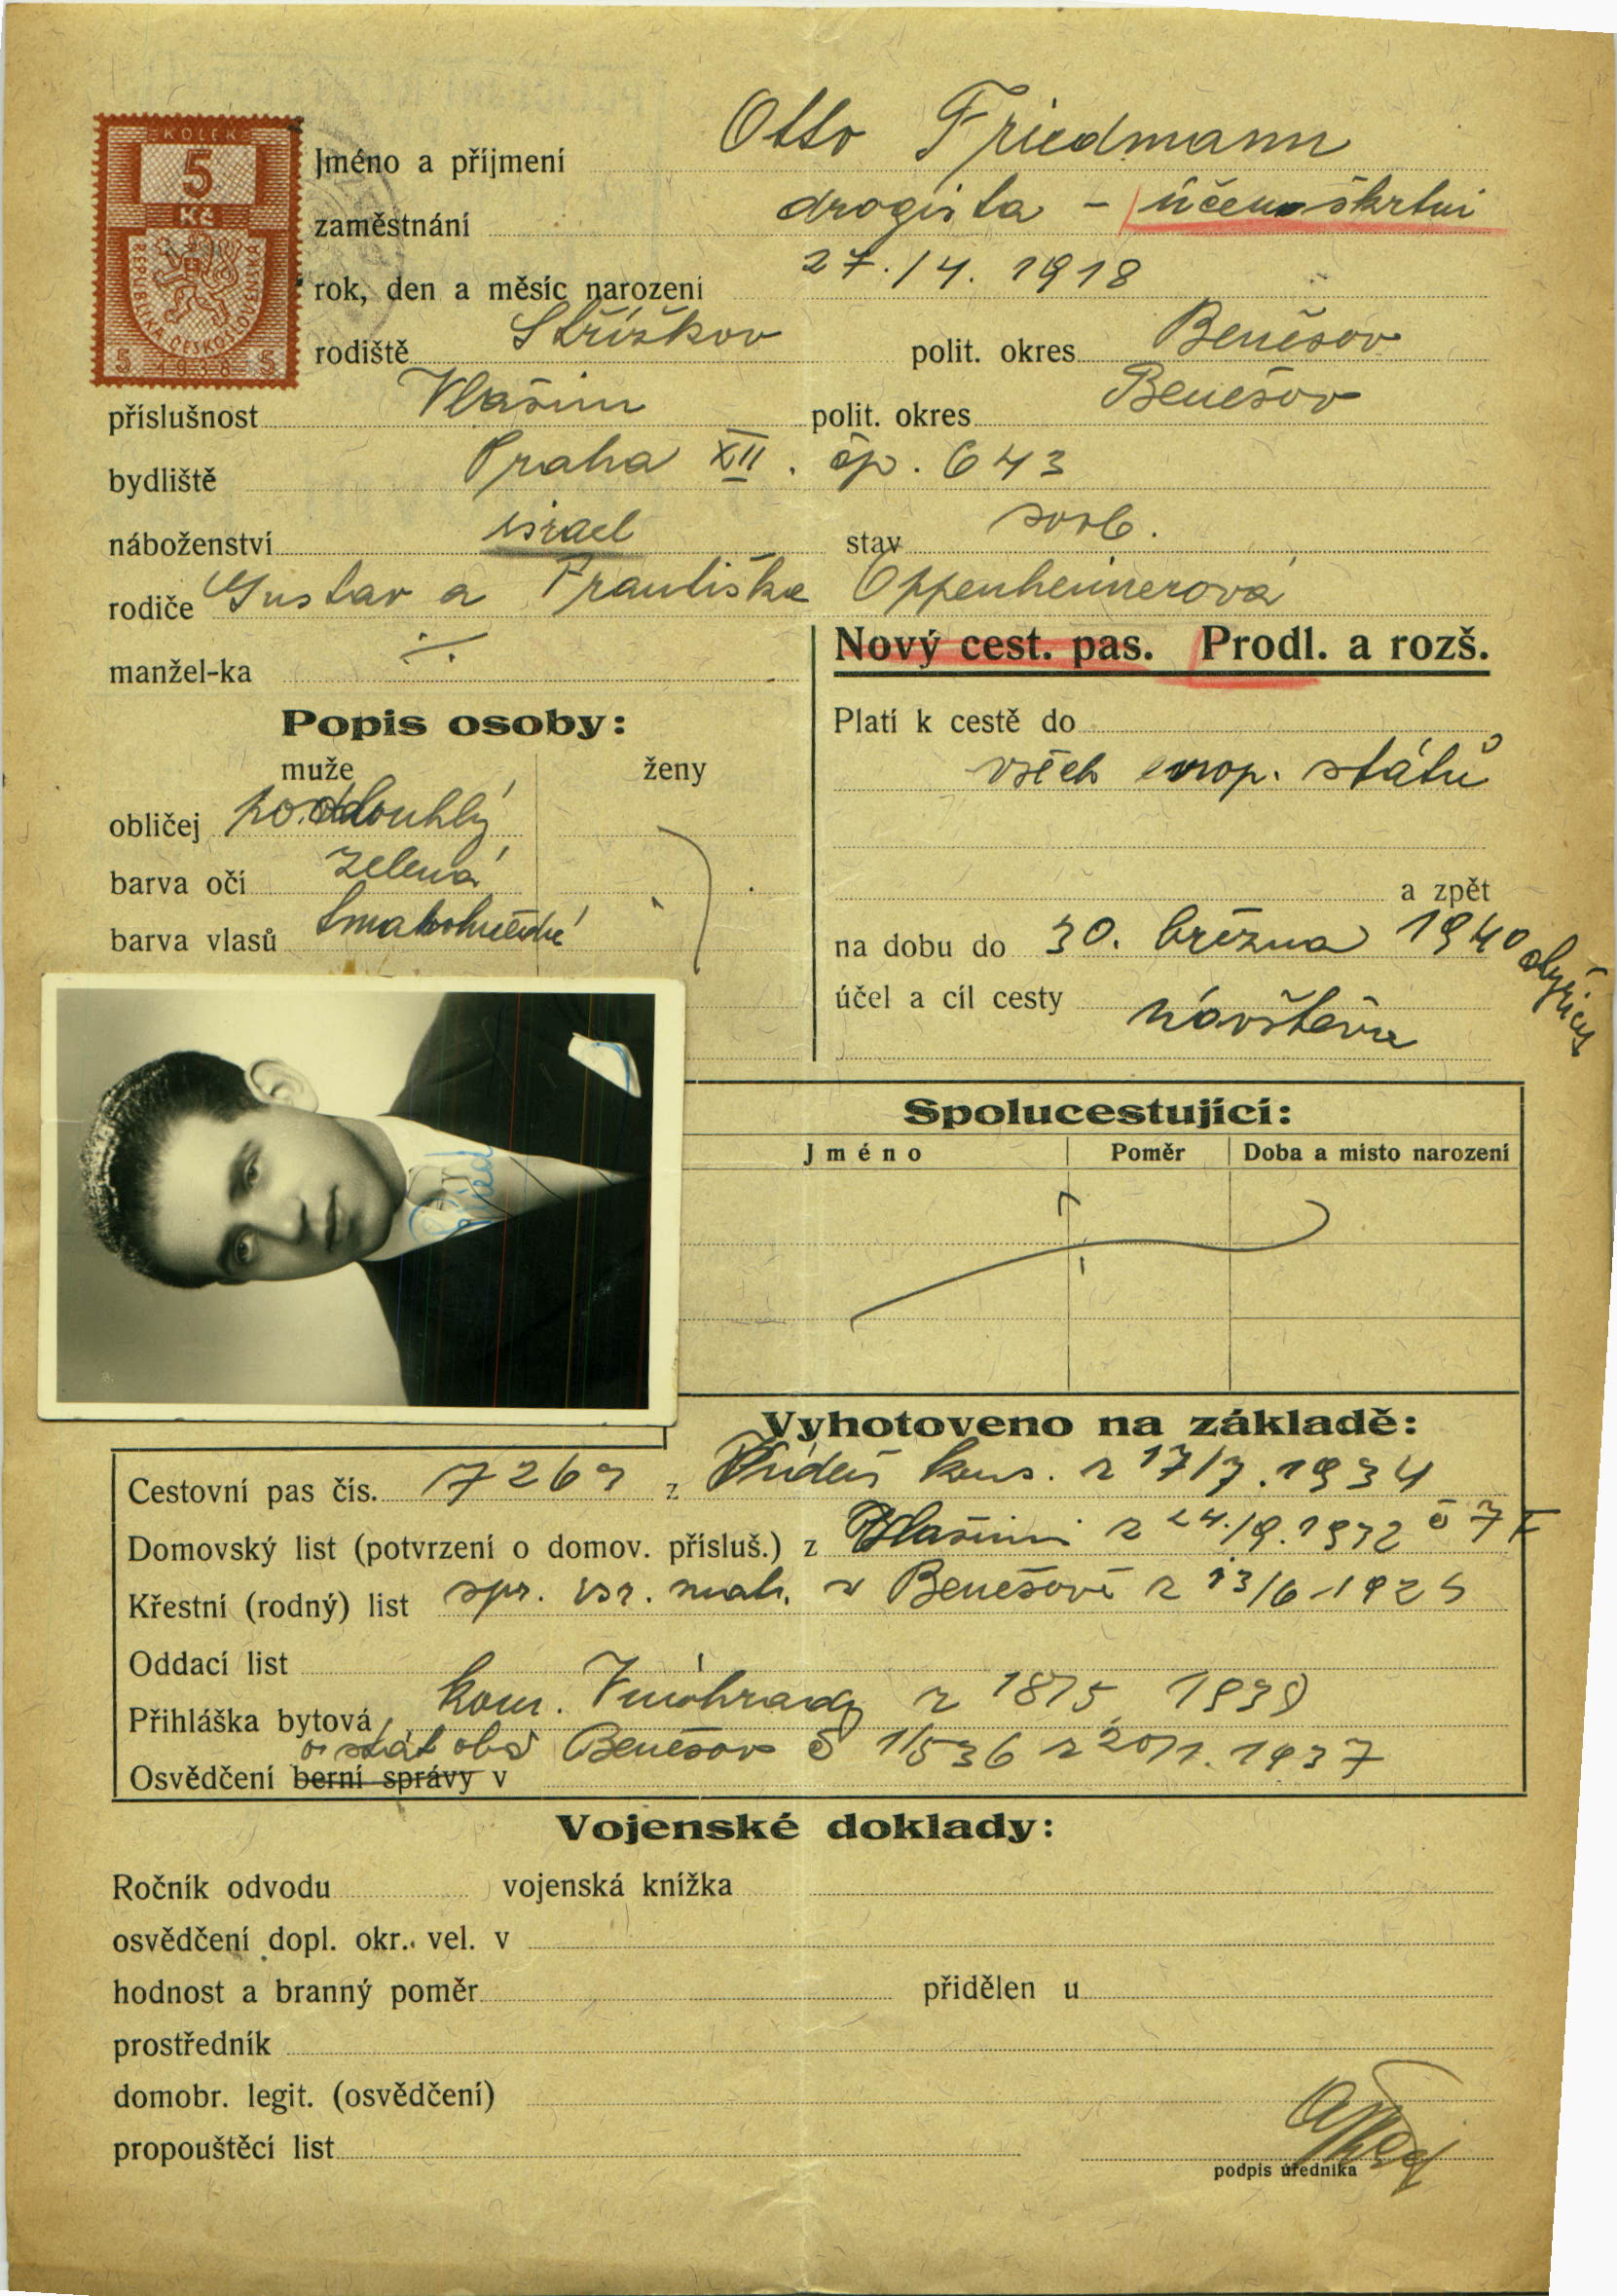 KOLEK
5
Kč
REPUBLIKA ČESKOSLOVENSKÁ
5 1938 5
Jméno a příjmení Otto Friedmann
zaměstnání drogista - škrtni
rok, den a měsíc narození 27./4. 1918
rodiště Střížkov polit. okres Benešov
příslušnost Vlašim polit. okres Benešov
bydliště Praha XII. čp. 643
náboženství israel stav svob.
rodiče Gustav a Františka Oppenheimerová
manžel-ka ./.
Nový cest. pas. Prodl. a rozš.
Popis osoby:
muže ženy
obličej podlouhlý
barva očí zelená
barva vlasů
Platí k cestě do
všech evrop. států
a zpět
na dobu do 30. března 1940
účel a cíl cesty návštěva
Spolucestující:
Jméno Poměr Doba a místo narození
Vyhotoveno na základě:
Cestovní pas čís. z kons. z 17/7. 1934
Domovský list (potvrzení o domov. přísluš.) z Vlašimi z 24./9. 1932 č 7
Křestní (rodný) list spr. isr. matr. v Benešově z 13/6 1925
Oddací list
Přihláška bytová kom. Vinohrady z 18/5 1938
Osvědčení berní správy v o stát obč Benešov č 1/536 z 20/1. 1937
Vojenské doklady:
Ročník odvodu vojenská knížka
osvědčení dopl. okr. vel. v
hodnost a branný poměr přidělen u
prostředník
domobr. legit. (osvědčení)
propouštěcí list
podpis úředníka